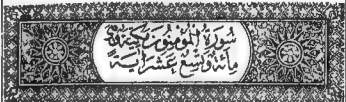 سورة المؤمنون مكية
مائة وتسع عشر اية